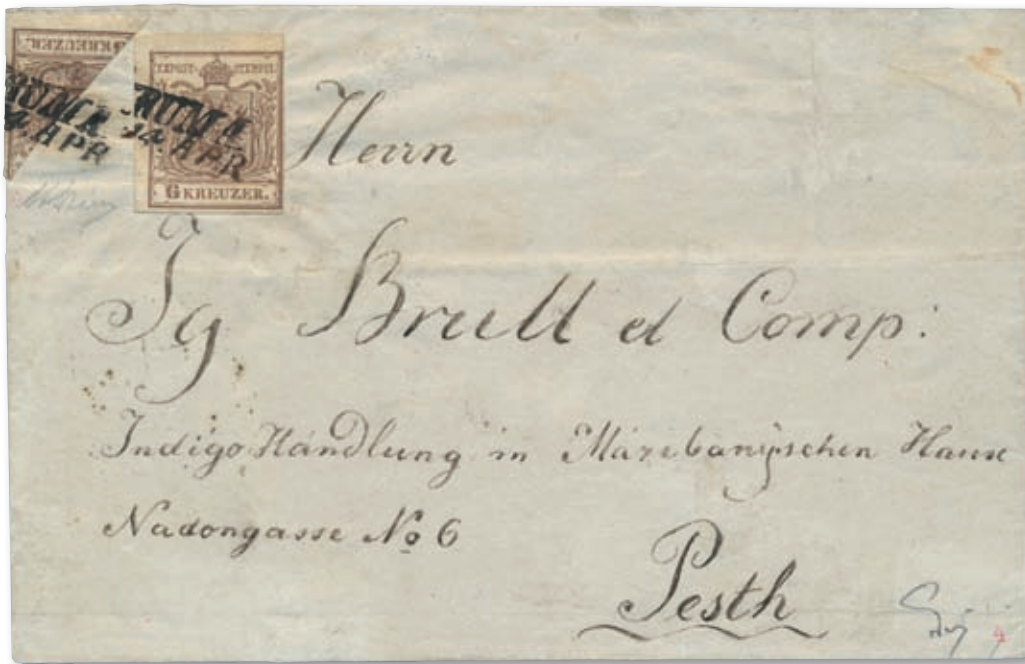 KREUZER.
RUMA
24. APR
K.K.POST-STEMPEL
RUMA
24. APR
6 KREUZER.
Herrn
Ig Brüll et Comp:
Indigo Handlung in Marzibanyischen Hause
Nadorgasse No 6
Pesth
4